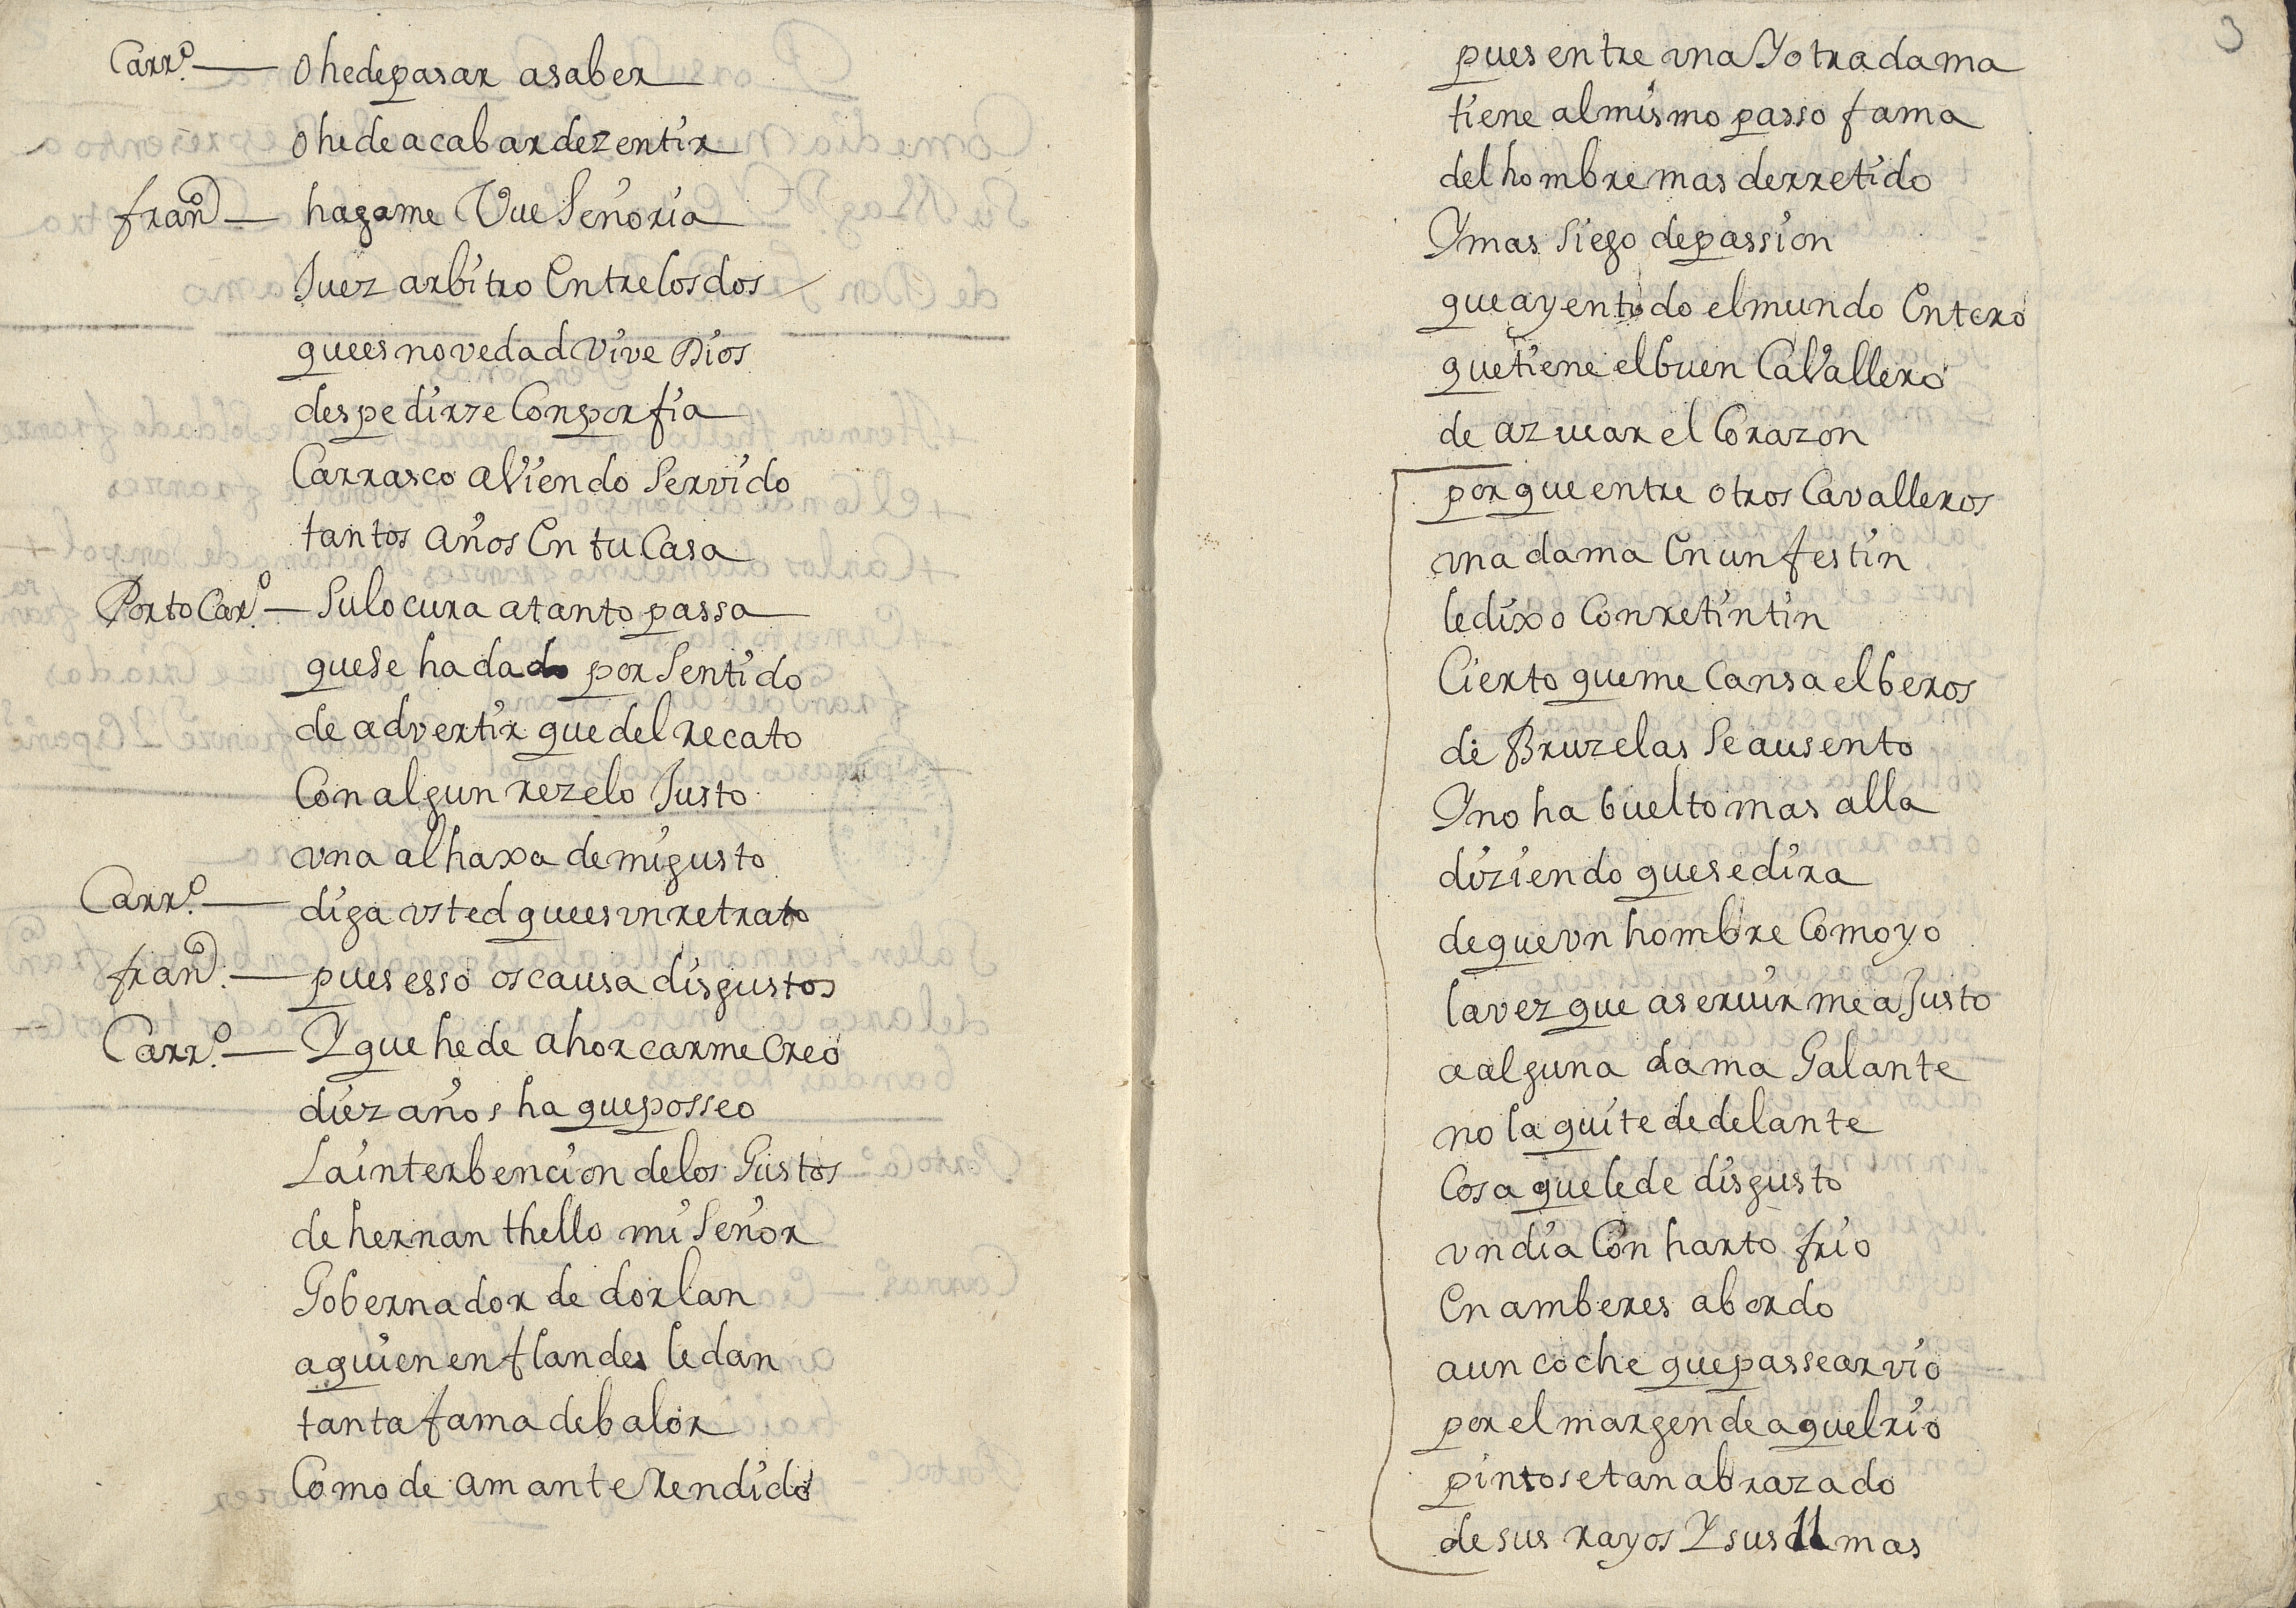 Carrº. — O he de pasar a saber
O he de acabar de zentir
franº — hagame Vue Señoria
Juez arbitro Entre los dos
que es novedad vive Dios
despedirze Con porfia
Carrasco aViendo Servido
tantos años En tu Casa
Porto Carº. — Su locura a tanto passa
que se ha dado por Sentido
de advertir que del recato
Con algun rezelo Justo
vna alhaxa de mi gusto
Carrº. — diga vsted que es vn retrato
franº. — pues esso os causa disgustos
Carrº. — Y que he de ahorcarme Creo
diez años ha que posseo
La interbencion de los Gustos
de hernan thello mi Señor
Gobernador de dorlan
a quien en flandes le dan
tanta fama de balor
Como de amante Rendido
3
pues entre vna Y otra dama
tiene al mismo passo fama
del hombre mas derretido
Y mas Siego de passion
que ay en todo el mundo Entero
que tiene el buen CaVallero
de azucar el Corazon
por que entre otros Cavalleros
vna dama En un festin
le dixo Con retintin
Cierto que me Cansa el beros
de Bruzelas Se ausento
Y no ha buelto mas alla
diziendo que se dira
de que vn hombre Como yo
la vez que a seruir me a Justo
a alguna dama Galante
no la quite de delante
Cosa que le de disgusto
vn dia Con harto frio
En amberes abordo
a un coche que passear vio
por el margen de aquel rio
pintose tan abrazado
de sus rayos Y sus llamas